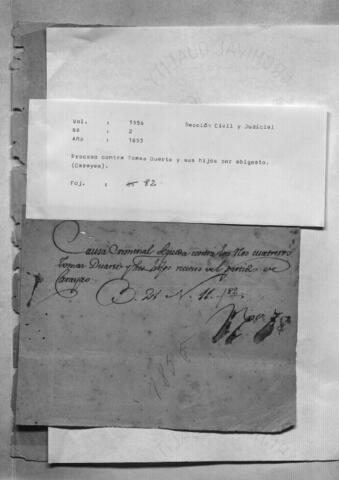 ARCHIVO NACIONAL
Vol. : 1556 Sección Civil y Judicial
Nº : 2
Año : 1853
Proceso contra Tomas Duarte y sus hijos por abigeato.
(Carayao).
Foj. : 82.
Causa Criminal seguida contra los Reos cuatreros
Tomas Duarte y sus hijos vecinos del partido de
Carayao.
C. 21 N. 11. 82
1855